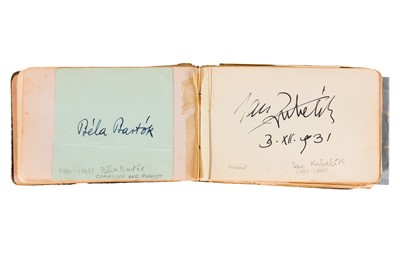 Béla Bartók
Béla Bartók
COMPOSER AND PIANIST
Jan Kubelík
3. XII. 931
Jan Kubelík